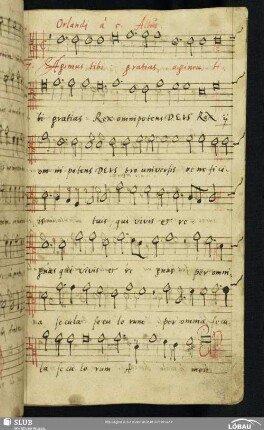 Orlandi à 5. Altus
Agimus tibi gratias, agimus t
bi gratias Rex omnipotens DEUS Rex ij
om ni potens DEUS pro universis be ne fi ci
is tuis qui vivis et re
gnas qui vivis et re gnas per omni
a secula secu lo rum per omnia secu
la se cu lo rum A men
SLUB
LÖBAU